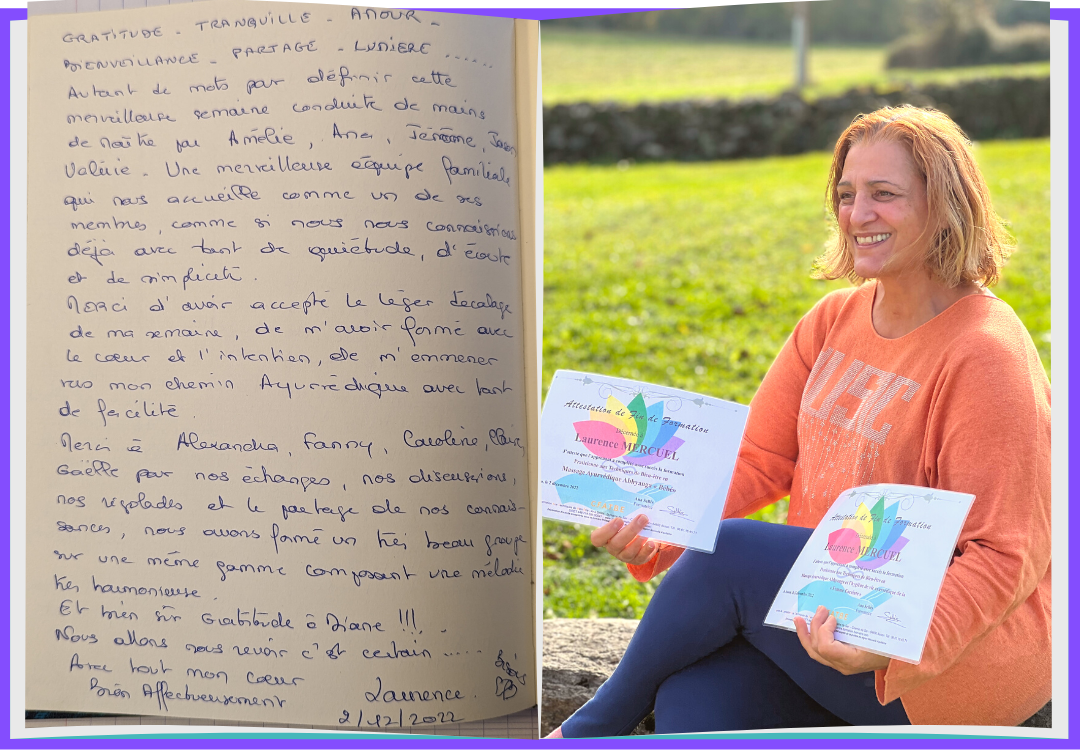 GRATITUDE - TRANQUILLE - AMOUR -
BIENVEILLANCE - PARTAGE - LUMIERE .....
Autant de mots pour définir cette
merveilleuse semaine conduite de mains
de maître par Amélie, Ana, Jérôme, Jason
Valérie. Une merveilleuse équipe familiale
qui nous accueille comme un de ses
membres, comme si nous nous connaissions
déjà avec tant de quiétude, d'écoute
et de simplicité.
Merci d'avoir accepté le léger décalage
de ma semaine, de m'avoir formé avec
le cœur et l'intention, de m'emmener
vers mon chemin Ayurvédique avec tant
de facilité.
Merci à Alexandra, Fanny, Caroline, Claire,
Gaëlle pour nos échanges, nos discussions,
nos rigolades et le partage de nos connais-
sances, nous avons formé un très beau groupe
sur une même gamme composant une mélodie
très harmonieuse.
Et bien sûr Gratitude à Diane !!!
Nous allons nous revoir c'est certain .....
Avec tout mon cœur
Bien Affectueusement
Laurence.
2/12/2022
Attestation de Fin de Formation
Décernée à
Laurence MERCUEL
Praticienne aux Techniques de Bien-être en
Massage Ayurvédique Abhyanga et Bébés
Attestation de Fin de Formation
Laurence MERCUEL